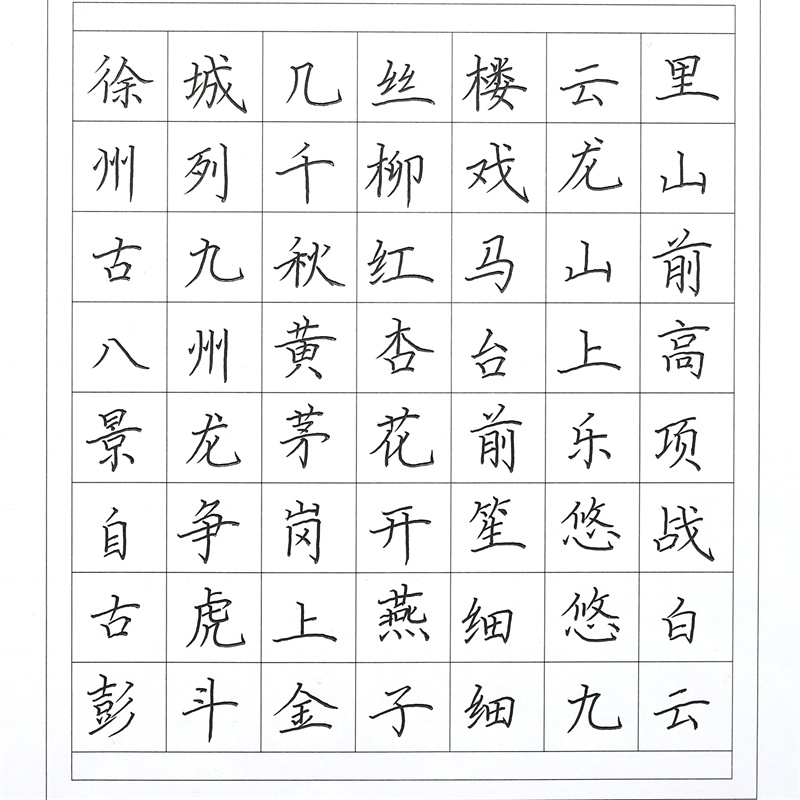 徐州古八景自古彭
城列九州龙争虎斗
几千秋黄茅岗上金
丝柳红杏花开燕子
楼戏马台前笙细细
云龙山上乐悠悠九
里山前高项战白云